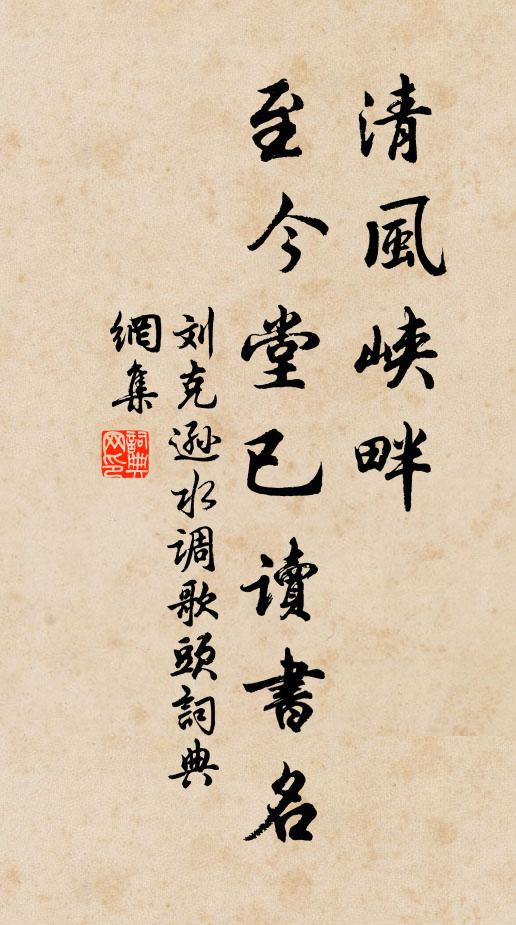 清風峡畔
至今堂已讀書名
刘克遜水调歌頭詞典
網集
詞典
网印